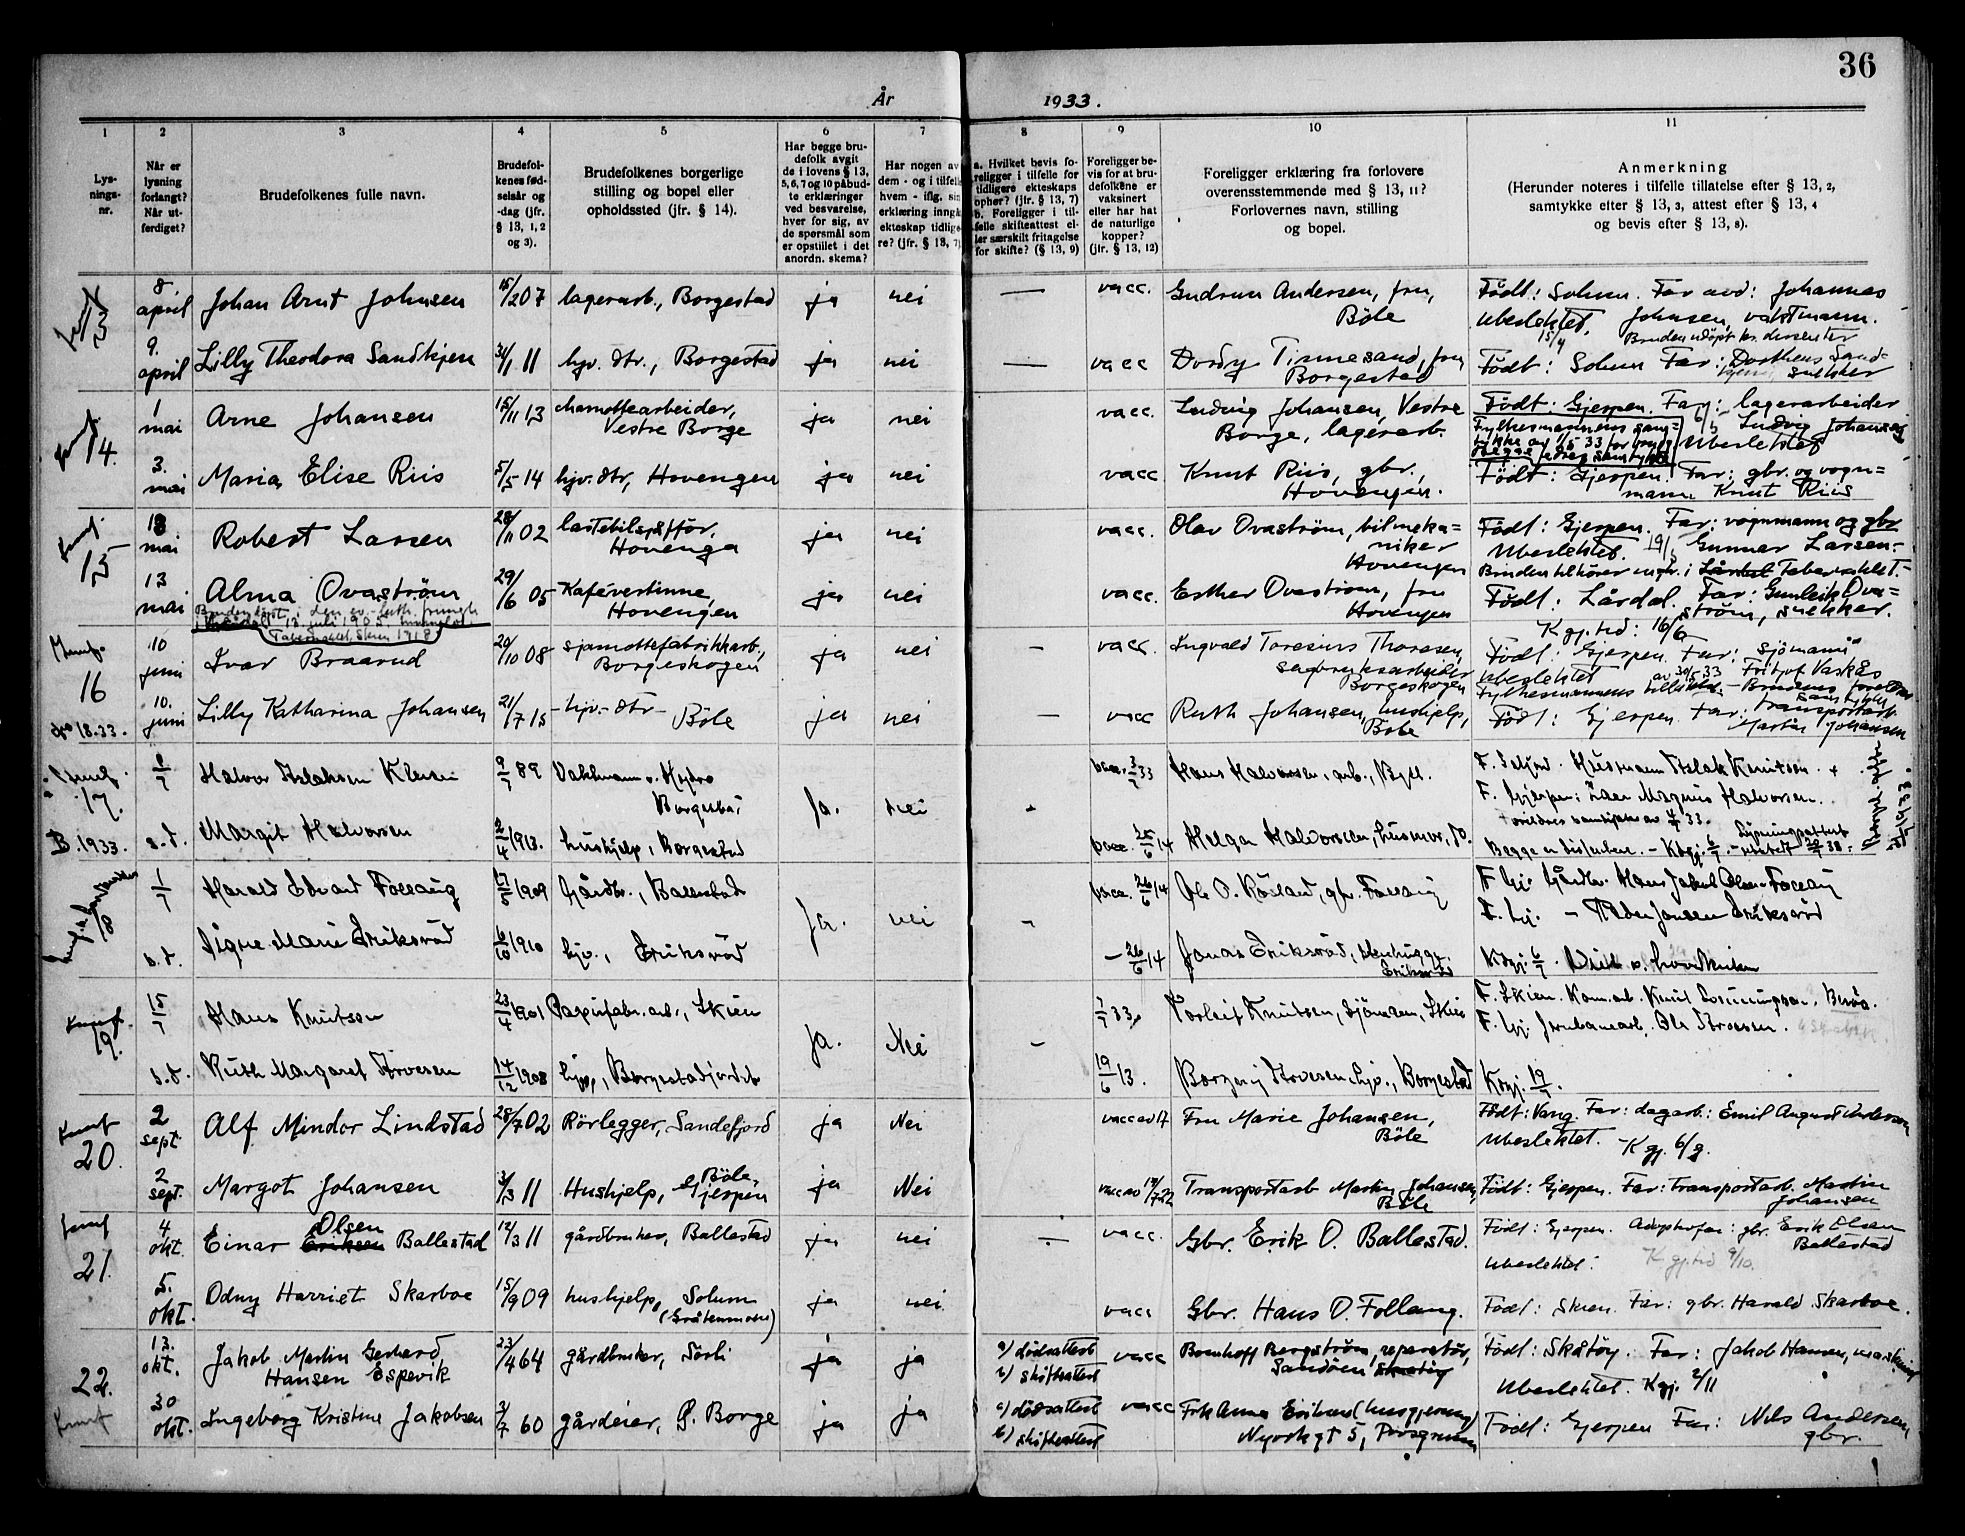 36
År 1933.
1 2 3 4 5 6 7 8 9 10 11
Lys-
nings-
nr.
Når er
lysning
forlangt?
Når ut-
ferdiget?
Brudefolkenes fulle navn.
Brudefol-
kenes fød-
selsår og
-dag (jfr.
§ 13, 1, 2
og 3).
Brudefolkenes borgerlige
stilling og bopel eller
opholdssted (jfr. § 14).
Har begge bru-
defolk avgit
de i lovens § 13,
5, 6, 7 og 10 påbud-
te erklæringer
ved besvarelse,
hver for sig, av
de spørsmål som
er opstillet i det
anordn. skema?
Har nogen av
dem - og i tilfelle
hvem - iflg. sin
erklæring inngå
ekteskap tidlige-
re? (jfr. § 13, 7)
a. Hvilket bevis fo-
religger i tilfelle for
tidligere ekteskaps
ophør? (jfr. § 13, 7)
b. Foreligger i til-
felle skifteattest el-
ler særskilt fritagelse
for skifte? (§ 13, 9)
Foreligger be-
vis for at bru-
defolkene er
vaksinert
eller har hat
de naturlige
kopper?
(jfr. § 13, 12)
Foreligger erklæring fra forlovere
overensstemmende med § 13, 11?
Forlovernes navn, stilling
og bopel.
Anmerkning
(Herunder noteres i tilfelle tillatelse efter § 13, 2,
samtykke efter § 13, 3, attest efter § 13, 4
og bevis efter § 13, 8).
13 8. april Johan Arnt Johnsen 15/2 07 lagerarb., Borgestad ja nei — vacc. Gudrun Andersen, fru, Født: Solum. Far avd: Johannes
Böle Ubeslektet. Johnsen, vaktmann.
15/4 Bruden udöpt kr. dissenter
9. april Lilly Theodora Sandkjen 31/1 11 hjv. dtr., Borgestad ja nei — vacc Dordy Tinnesand, fru Født: Solum Far: Dorthens Sand-
Borgestad snekker
14. 1 mai Arne Johansen 15/11 13 chamottearbeider, ja nei vacc. Ludvig Johansen, Vestre Født: Gjerpen. Far: lagerarbeider
Vestre Borge Borge, lagerarb. 6/5 Ludvig Johansen
Fylkesmannens sam-
tykke av 1/5 33 for brud Ubeslektet
3. mai Maria Elise Riis 5/5 14 hjv. dtr, Hovengen ja nei vacc Knut Riis, gbr., Født: Gjerpen. Far: gbr. og vogn-
Hovengen. mann Knut Riis
15 13 mai Robert Larsen 28/11 02 lastebilsjåför, ja nei vacc. Olav Ovaström, bilmeka- Født: Gjerpen. Far: vognmann og gbr
Hovenga niker Ubeslektet. 19/5 Gunnar Larsen.
Hovengen Bruden tilhörer mgh. i Tabernaklet.
13 mai Alma Ovaström 29/6 05 Kafévertinne, ja nei vacc. Esther Ovaström, fru Født: Lårdal. Far: Gunleik Ova-
Hovengen Hovengen ström, snekker.
Bruden döpt i den ev.-luth. mngh
juli 1905,
Tabernaklet, Skien 1918
16 10 juni Ivar Braarud 20/10 08 sjamottefabrikkarb., ja nei - vacc. Ingvald Toresius Thoresen, K gj. tid: 16/6
Borgeskogen sagbruksarbeider Født: Gjerpen. Far: sjömann
Borgeskogen Ubeslektet av 30/5 33 Fritjof Vaskås
Fylkesmannens tillatelse - Brudens foreldres samtykke
10. juni Lilly Katharina Johansen 21/7 15 hjv. dtr - Böle ja nei — vacc Ruth Johansen, hushjelp, Født: Gjerpen Far: transportarb.
Böle Martin Johansen
18.33.
17. 8/7 Halvor Aslaksen 9/7 89 Vaktmann v. Hydro Ja. nei - vacc. 3/7 33 Hans Halvorsen, arb., F. Seljord. Husmann Aslak Knutsen. +
Borgestad F. Gjerpen: Magnus Halvorsen.
foreldres samtykke av 4/7 33.
B. 1933. s.d. Margit Halvorsen 2/4 1913. hushjelp, Borgestad vacc. 25/6 14 Helga Halvorsen, husmor, Do. Begge er dissentere. - Kbgj. 6/7. - Lysningsattest
18 1/7 Harald Edvard Follaug 1909 Gårdbr., Ballestad Ja. nei - vacc 26/6 14 Ole O. Kösland, gbr. Follaug F. Gj. Gårdbr. Hans Jakob Olsen Follaug
F. Gj. - Peder Jonsen Eriksröd
s.d. Signe Marie Eriksröd 6/6 1910 hjv., Eriksröd - 26/6 14 Jonas Eriksröd, stenhugger, Kbgj. 6/7. Viet v.
Eriksröd
19. 15/7 Hans Knutsen 23/4 1901 Papirfabr. arb., Skien Ja. Nei - 7/7 33. Torleif Knutsen, Sjömann, Skien F. Skien. Kom. arb. Knut
F. Gj. Jernbanearb.
s.d. Ruth Margaret 14/12 1908 hjv., Borgestad 19/6 13. Borgny hjv., Borgestad Kbgj. 19/7.
20. 2 sept. Alf Mindor Lindstad 28/7 02 Rörlegger, Sandefjord ja Nei vacc av 17 Fru Marie Johansen, Født: Vang. Far: dagarb.: Emil August Andersen
Böle Ubeslektet. Kgj. 6/9.
2 sept. Margot Johansen 3/3 11 Hushjelp, Böle, Gjerpen ja Nei vacc av 22 Transportarb Martin Johansen, Født: Gjerpen. Far: transportarb. Martin
Böle Johansen
21. 4 okt. Einar Eriksen Olsen Ballestad 12/3 11 gårdbruker, Ballestad ja nei — vacc. Gbr. Erik O. Ballestad. Født: Gjerpen. Adoptivfar: gbr. Erik Olsen
Ballestad
Ubeslektet. K. gj. tid 9/10.
5. okt. Odny Harriet Skarboe 15/9 09 hushjelp, Solum ja nei vacc Gbr. Hans O. Follaug. Født: Skien. Far: gbr. Harald Skarboe.
(Gråtenmoen)
22. 13. okt. Jakob Martin Gerhard 23/4 64 gårdbruker, Sörli ja ja a) dödsattest vacc Bernhoff Bergström, reparatör, Født: Skåtöy. Far: Jakob Hansen,
Hansen Espevik b) skifteattest Sandöen Skåtöy Ubeslektet. Kgj. 2/11
30 okt. Ingeborg Kristine Jakobsen 3/7 60 gårdeier, Ö. Borge ja ja a) dödsattest vacc Frk Anna (husgjerning) Født: Gjerpen Far: Nils Andersen
b) skifteattest Nyvskgt 5, Porsgrunn gbr.